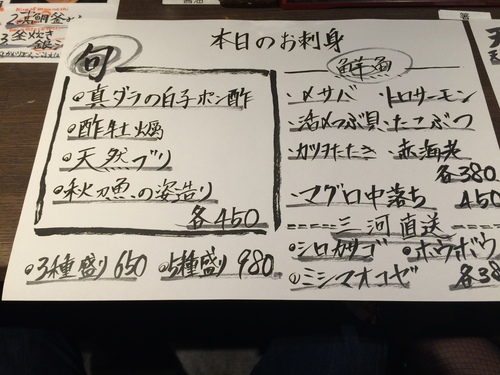 本日のお刺身
旬
・真ダラの白子ポン酢
・酢牡蠣
・天然ブリ
・秋刀魚の姿造り
各450
・3種盛り650 ・5種盛り980
鮮魚
・〆サバ ・トロサーモン
・活つぶ貝・たこぶつ
・カツオたたき ・赤海老
各380
・マグロ中落ち 450
三河直送
・シロカサゴ ・ホウボウ
・ミシマオコゼ 各38